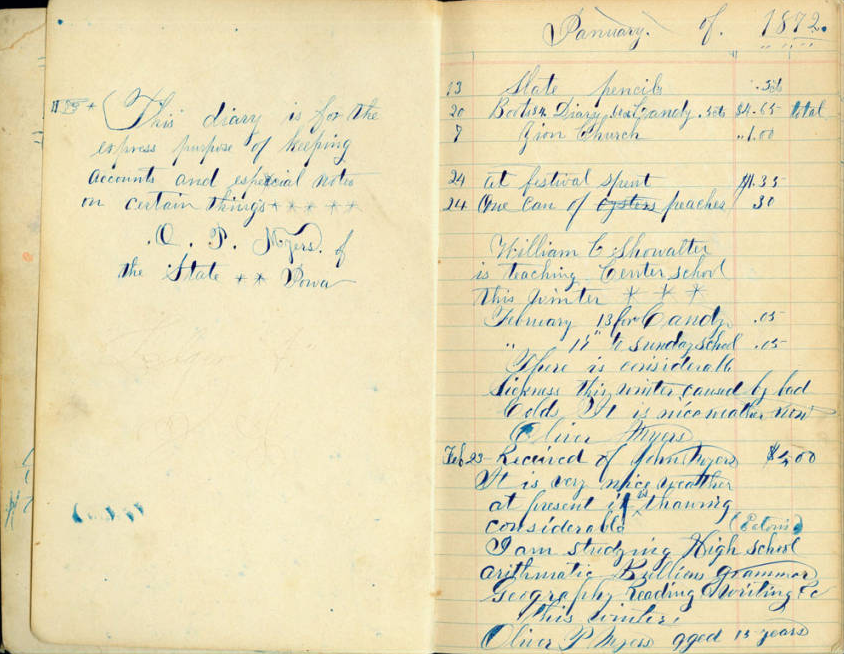 This diary is for the
express purpose of keeping
accounts and especial notes
on certain things * * * * *
O. P. Myers. of
the State * * Iowa
January. of. 1872.
13 Slate pencils
20 Diary, Candy. $4.65 total
7 Zion Church 1.00
24 at festival spent $1.35
24 One can of oysters peaches 30
William C Showalter
is teaching Center school
this winter * * *
February 13 for Candy .05
" to Sunday school .05
There is considerable
Sickness this winter caused by bad
Colds, It is nice weather now
Oliver Myers
Feb 23 Received of John Myers
It is very nice weather
at present it is thawing
considerable
I am studying High school
arithmatic Bullions Grammar
Geography Reading Writing &c
this winter.
Oliver P Myers aged 15 years